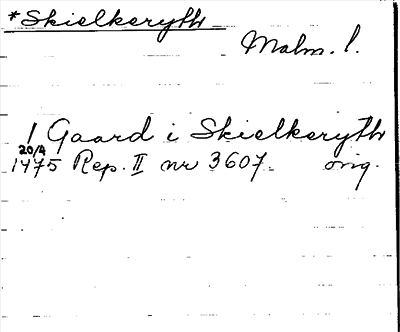 *Skielkeryth
Malm. l.
1 Gaard i Skielkeryth
20/4
1475 Rep. II nr 3607. orig.